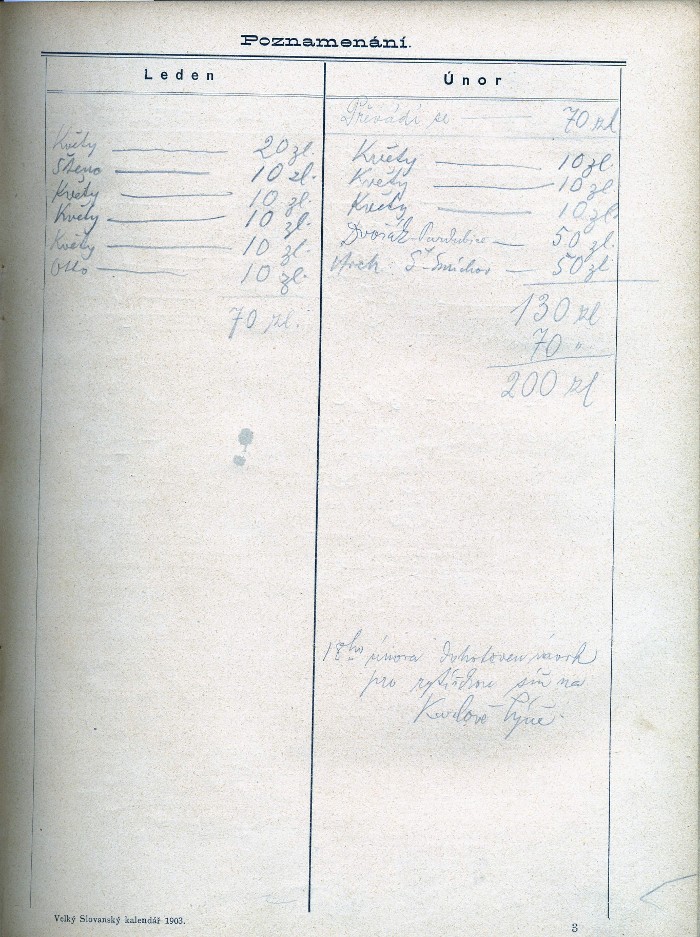 Poznamenání.
Leden
Květy 20 zl.
Štenc 10 zl.
Květy 10 zl.
Květy 10 zl.
Květy 10 zl.
Otto 10 zl.
70 zl.
Únor
Převádí se 70 zl
Květy 10 zl.
Květy 10 zl.
Květy 10 zl.
Dvořák Pardubice 50 zl.
Arch. Smíchov 50 zl
130 zl
70 "
200 zl
února dohotoven návrh
pro rytířskou síň na
Karlově Týně.
Velký Slovanský kalendář 1903.
3